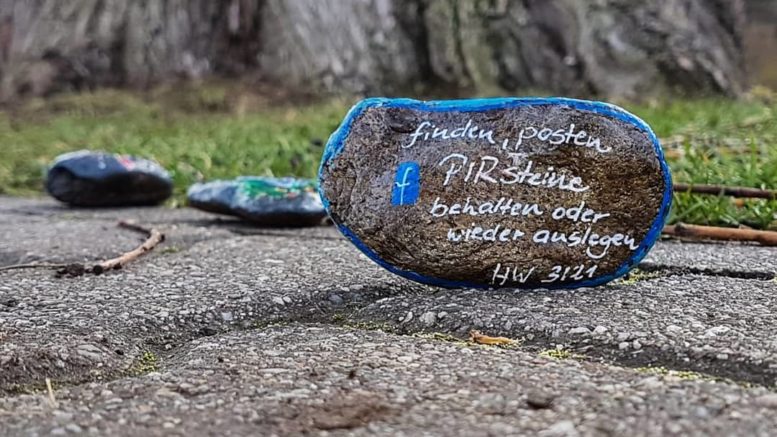 finden, posten
f PIRSteine
behalten oder
wieder auslegen
HW 3121